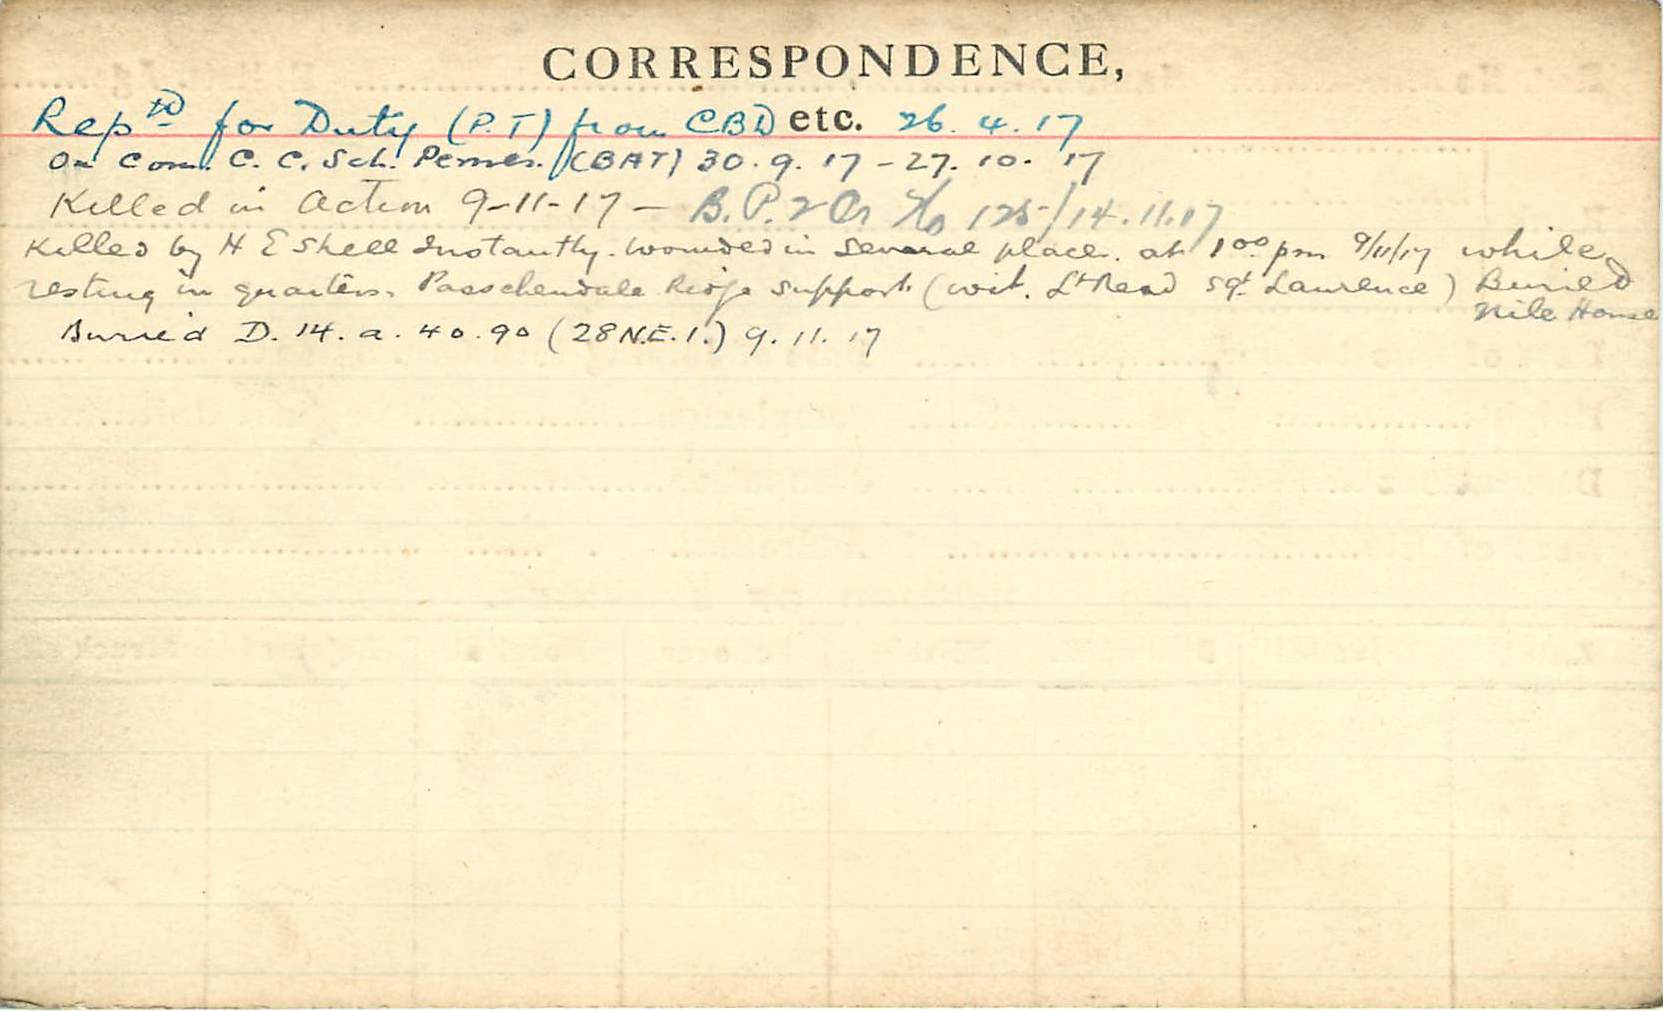 CORRESPONDENCE,
Rep'td for Duty (P.T) from CBD etc. 26.4.17
On Com. C. C. Sch. Pernes. (BAT) 30.9.17 - 27.10.17
Killed in Action 9-11-17 - B.P. 2 125/14.11.17
Killed by H E Shell Instantly. Wounded in several place. at 1 00 pm 9/11/17 while
resting in quarters. Passchendale Ridge support (wit. Lt Read Sgt. Laurence) Buried
Nile House
Buried D. 14. a. 40.90 (28 N.E. 1.) 9.11.17